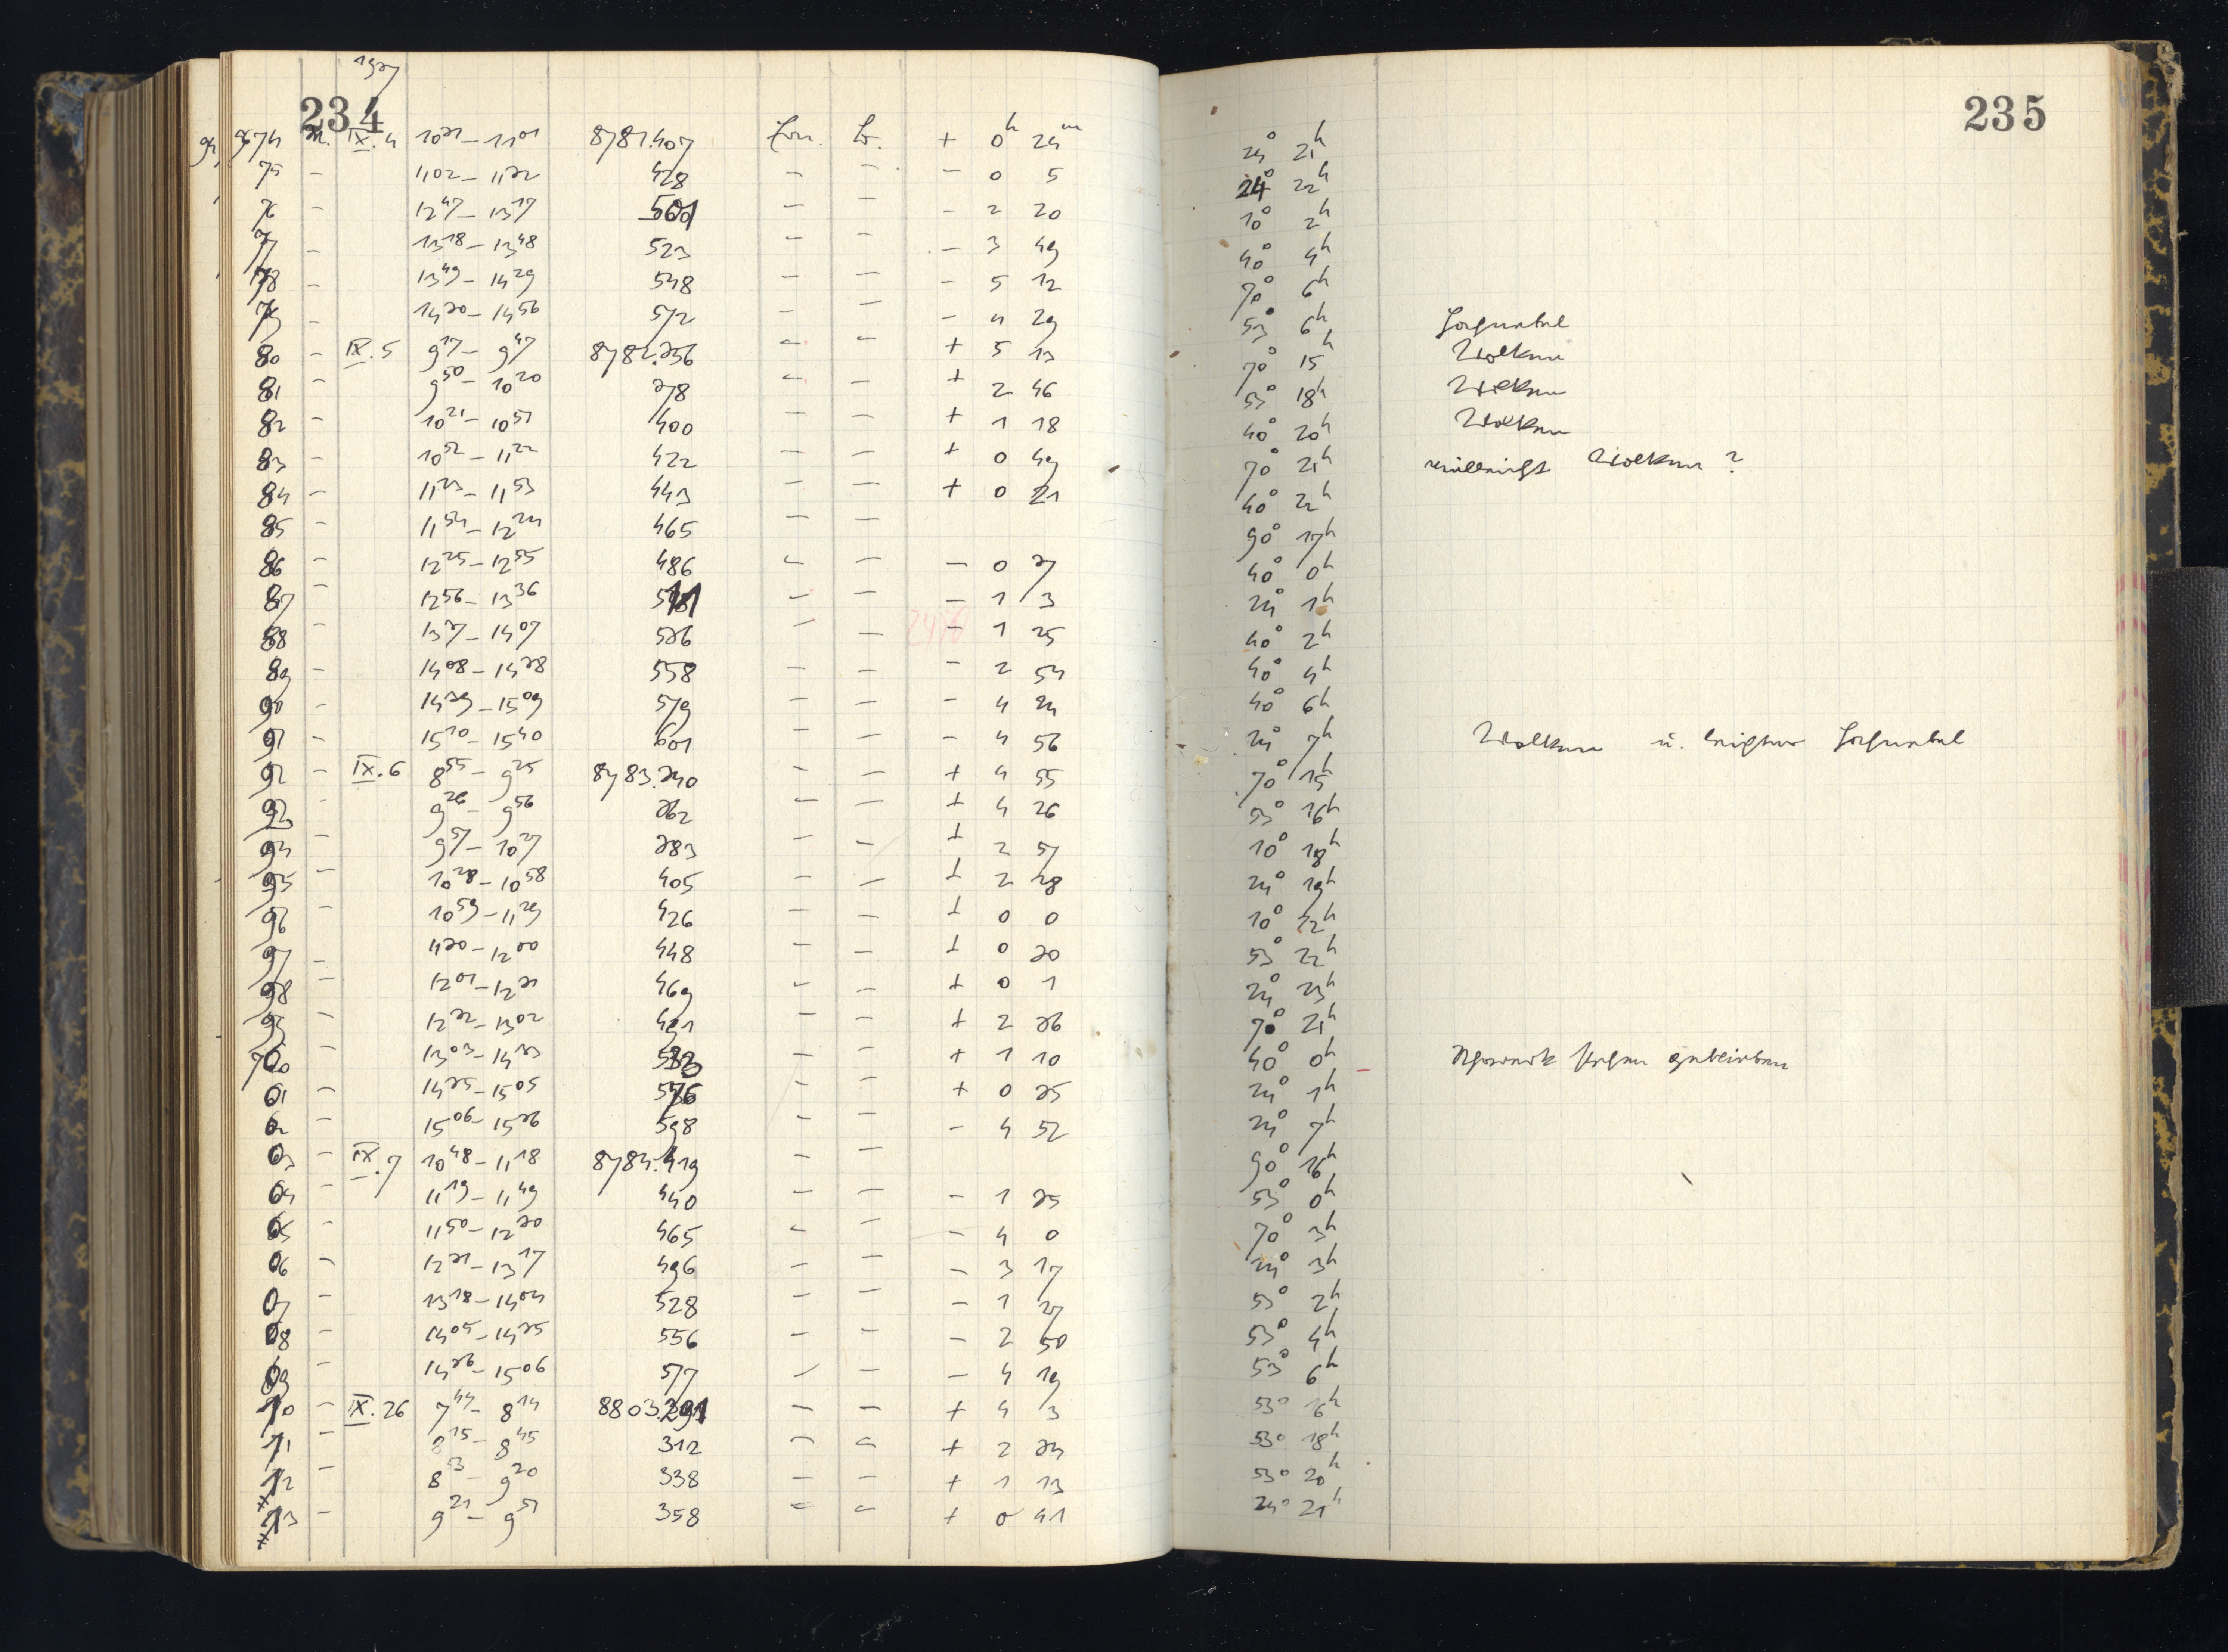 1927
234
235
9674 m. IX.4 10³¹ – 11⁰¹ 8781.407 Zon. Lo. + 0ʰ 24ᵐ 24° 21ʰ
75 – 11⁰² – 11³² 428 – – – 0 5 24° 22ʰ
76 – 12⁴⁷ – 13¹⁷ 501 – – – 2 20 10° 2ʰ
77 – 13¹⁸ – 13⁴⁸ 523 – – – 3 49 40° 4ʰ
78 – 13⁴⁹ – 14²⁹ 548 – – – 5 12 70° 6ʰ
79 – 14³⁰ – 14⁵⁶ 572 – – – 4 29 53° 6ʰ Hochnebel
80 – IX.5 9¹⁷ – 9⁴⁷ 8782.356 – – + 5 13 70° 15ʰ Wolken
81 – 9⁵⁰ – 10²⁰ 378 – – + 2 46 53° 18ʰ Wolken
82 – 10²¹ – 10⁵¹ 400 – – + 1 18 40° 20ʰ Wolken
83 – 10⁵² – 11²² 422 – – + 0 49 70° 21ʰ vielleicht Wolken ?
84 – 11²³ – 11⁵³ 443 – – + 0 21 40° 22ʰ
85 – 11⁵⁴ – 12²⁴ 465 – – 90° 17ʰ
86 – 12²⁵ – 12⁵⁵ 486 – – – 0 37 40° 0ʰ
87 – 12⁵⁶ – 13³⁶ 511 – – – 1 3 24° 1ʰ
88 – 13³⁷ – 14⁰⁷ 536 – – – 1 25 40° 2ʰ
89 – 14⁰⁸ – 14³⁸ 558 – – – 2 54 40° 4ʰ
90 – 14³⁹ – 15⁰⁹ 579 – – – 4 24 40° 6ʰ
91 – 15¹⁰ – 15⁴⁰ 601 – – – 4 56 24° 7ʰ Wolken u. leichter Hochnebel
92 – IX.6 8⁵⁵ – 9²⁵ 8783.340 – – + 4 55 70° 15ʰ
93 – 9²⁶ – 9⁵⁶ 362 – – + 4 26 53° 16ʰ
94 – 9⁵⁷ – 10²⁷ 383 – – + 2 57 10° 18ʰ
95 – 10²⁸ – 10⁵⁸ 405 – – + 2 28 24° 19ʰ
96 – 10⁵⁹ – 11²⁹ 426 – – + 0 0 10° 22ʰ
97 – 11³⁰ – 12⁰⁰ 448 – – + 0 30 53° 22ʰ
98 – 12⁰¹ – 12³¹ 469 – – + 0 1 24° 23ʰ
99 – 12³² – 13⁰² 491 – – + 2 36 70° 21ʰ
700 – 13⁰³ – 14³³ 533 – – + 1 10 40° 0ʰ Uhrwerk stehen geblieben
01 – 14³⁵ – 15⁰⁵ 576 – – + 0 35 24° 1ʰ
02 – 15⁰⁶ – 15³⁶ 598 – – – 4 52 24° 7ʰ
03 – IX.7 10⁴⁸ – 11¹⁸ 8784.419 – – 90° 16ʰ
04 – 11¹⁹ – 11⁴⁹ 440 – – – 1 35 53° 0ʰ
05 – 11⁵⁰ – 12³⁰ 465 – – – 4 0 70° 3ʰ
06 – 12³¹ – 13¹⁷ 496 – – – 3 17 24° 3ʰ
07 – 13¹⁸ – 14⁰⁴ 528 – – – 1 27 53° 2ʰ
08 – 14⁰⁵ – 14³⁵ 556 – – – 2 50 53° 4ʰ
09 – 14³⁶ – 15⁰⁶ 577 – – – 4 19 53° 6ʰ
10 – IX.26 7⁴⁴ – 8¹⁴ 8803.291 – – + 4 3 53° 16ʰ
11 – 8¹⁵ – 8⁴⁵ 312 – – + 2 34 53° 18ʰ
12 – 8⁵³ – 9²⁰ 338 – – + 1 13 53° 20ʰ
13 – 9²¹ – 9⁵¹ 358 – – + 0 41 24° 21ʰ